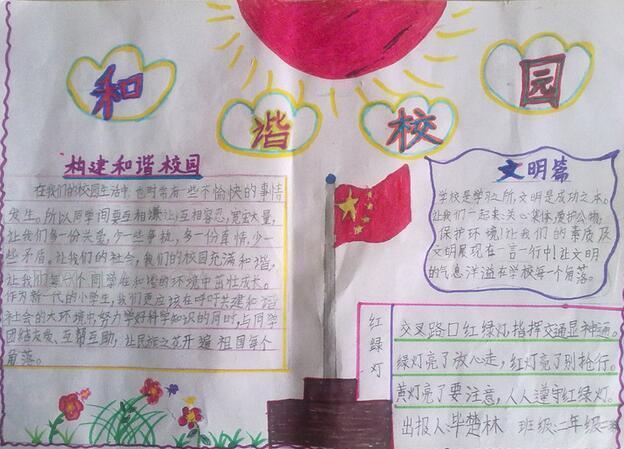 和谐校园
构建和谐校园
在我们的校园生活中,也时常有一些不愉快的事情
发生。所以同学间要互相谦让,互相容忍,宽宏大量,
让我们多一份关爱,少一些争执,多一份真情,少一
些矛盾。让我们的社会,我们的校园充满和谐,
让我们每个同学在和谐的环境中茁壮成长。
作为新一代的小学生,我们更应该在呼吁共建和谐
社会的大环境中,努力学好科学知识的同时,与同学
团结友爱、互帮互助,让民族之花开遍祖国每个
角落。
文明篇
学校是学习之所,文明是成功之本。
让我们一起来:关心集体,爱护公物,
保护环境!让我们的素质及
文明展现在一言一行中!让文明
的气息洋溢在学校每个角落。
红绿灯
交叉路口红绿灯,指挥交通显神通。
绿灯亮了放心走,红灯亮了别抢行。
黄灯亮了要注意,人人遵守红绿灯。
出报人:毕楚林 班级:二年级